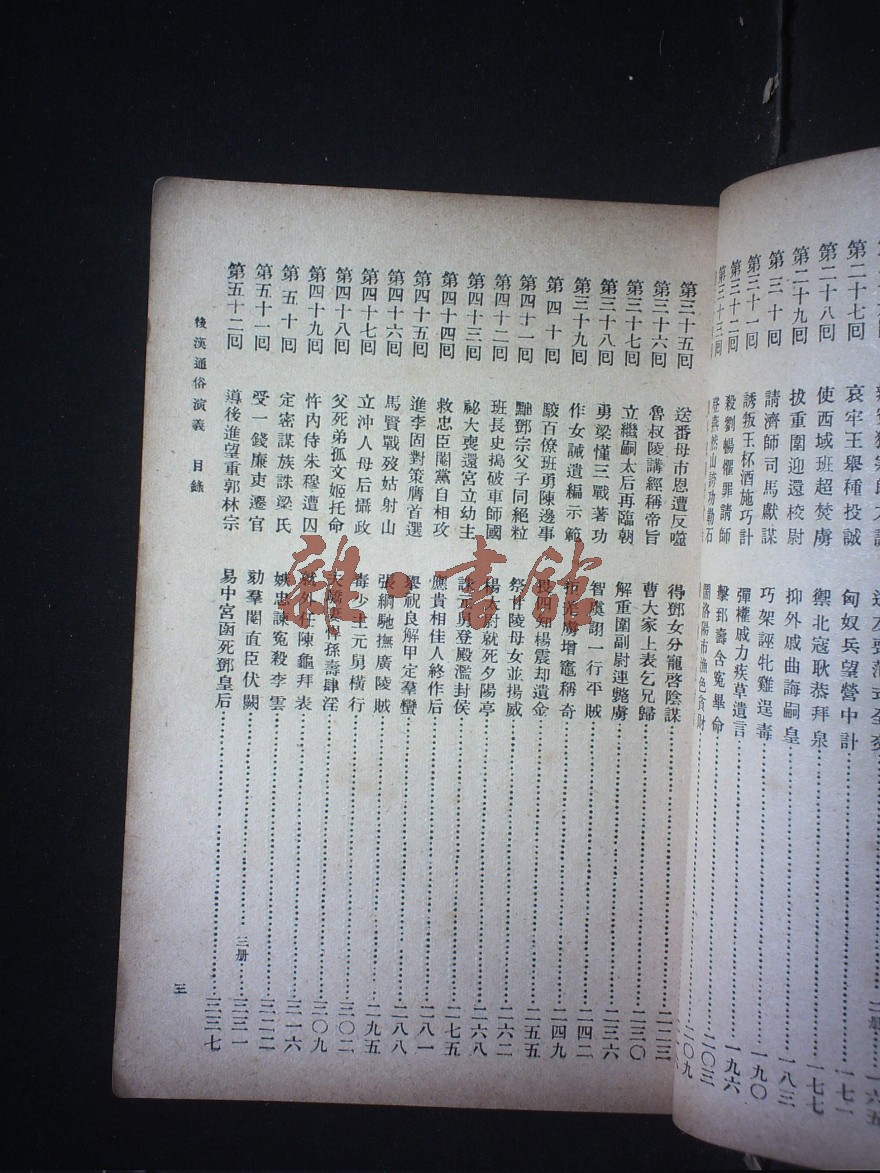 第二十七回 哀牢王舉種投誠 匈奴兵望營中計……一七一
第二十八回 使西域班超焚虜 禦北寇耿恭拜泉……一七七
第二十九回 拔重圍迎還校尉 抑外戚曲誨嗣皇……一八三
第三十回 請濟師司馬獻謀 巧架誣牝雞逞毒……一九〇
第三十一回 誘叛王杯酒施巧計 彈權戚力疾草遺言……一九六
第三十二回 殺劉暢懼罪請師 擊郅壽含冤畢命……二〇三
第三十三回 登燕然山誇功勒石 鬧洛陽市漁色貪財……二〇九
第三十五回 送番母市恩遭反噬 得鄧女分寵啓陰謀……二二三
第三十六回 魯叔陵講經稱帝旨 曹大家上表乞兄歸……二三〇
第三十七回 立繼嗣太后再臨朝 解重圍副尉連斃虜……二三六
第三十八回 勇梁慬三戰著功 智虞詡一行平賊……二四二
第三十九回 作女誡遺編示範 拒羌虜增竈稱奇……二四九
第四十回 駁百僚班勇陳邊事 畏四知楊震却遺金……二五五
第四十一回 黜鄧宗父子同絕粒 祭甘陵母女並揚威……二六二
第四十二回 班長史搗破車師國 楊太尉就死夕陽亭……二六八
第四十三回 祕大喪還宮立幼主 誅元舅登殿濫封侯……二七五
第四十四回 救忠臣閹黨自相攻 應貴相佳人終作后……二八一
第四十五回 進李固對策膺首選 舉祝良解甲定羣蠻……二八八
第四十六回 馬賢戰歿姑射山 張綱馳撫廣陵賊……二九五
第四十七回 立沖人母后攝政 毒少主元舅橫行……三〇二
第四十八回 父死弟孤文姬托命 夫驕妻悍孫壽肆淫……三〇九
第四十九回 忤內侍朱穆遭囚 就外任陳龜拜表……三一六
第五十回 定密謀族誅梁氏 嫉忠諫冤殺李雲……三二二
第五十一回 受一錢廉吏遷官 劾羣閹直臣伏闕……三册……三三一
第五十二回 導後進望重郭林宗 易中宮函死鄧皇后……三三七
後漢通俗演義 目錄
三
雜·書館